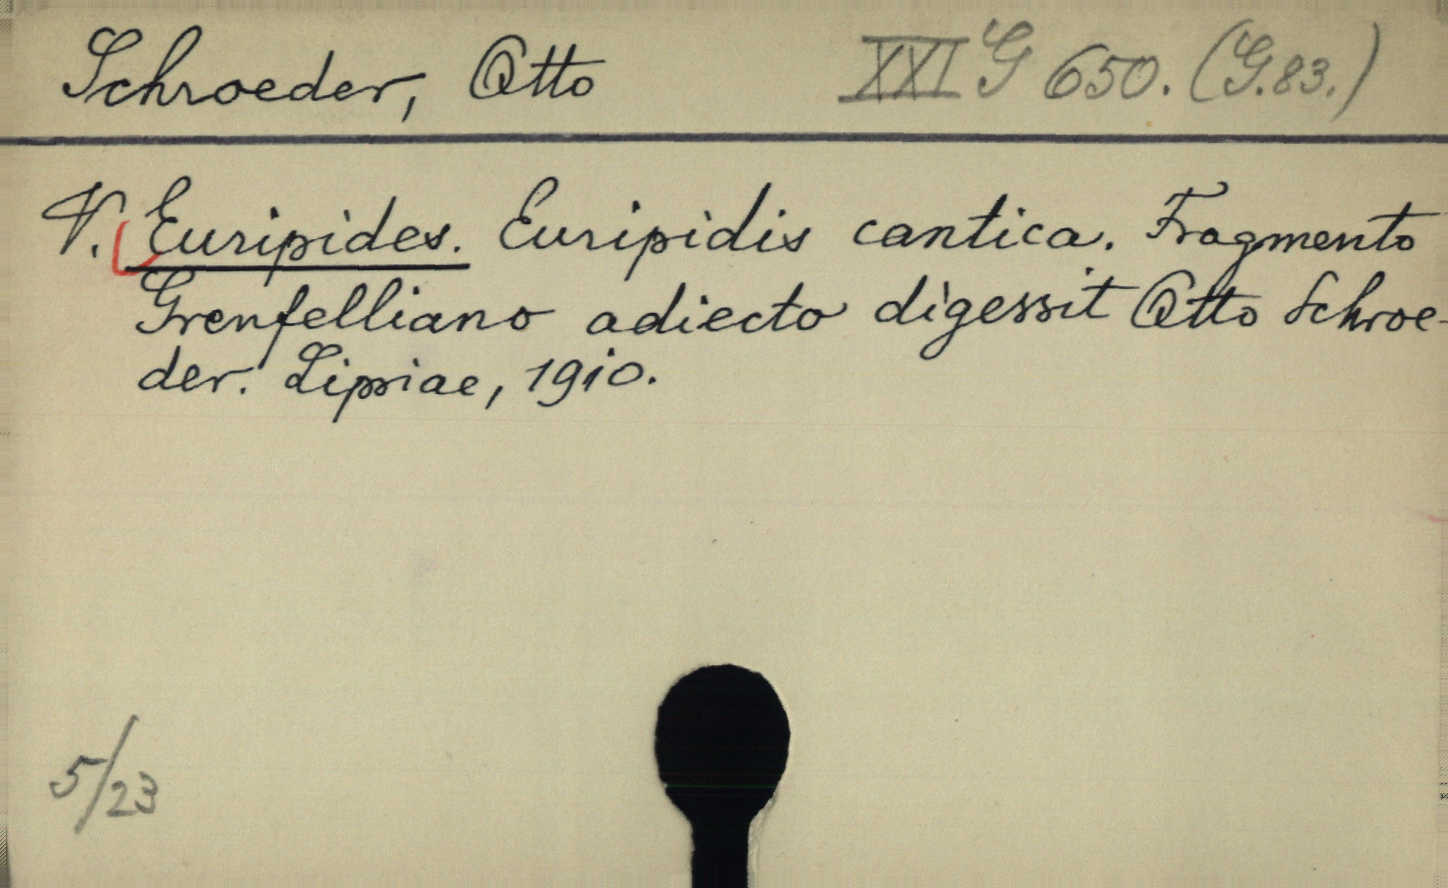 Schroeder, Otto XXI G 650. (G.83.)
V. Euripides. Euripidis cantica. Fragmento
Grenfelliano adiecto digessit Otto Schroe-
der. Lipsiae, 1910.
5/23